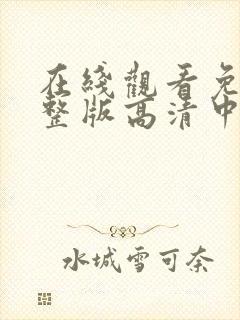 在綫觀看免
整版高清中
水城雪可奈